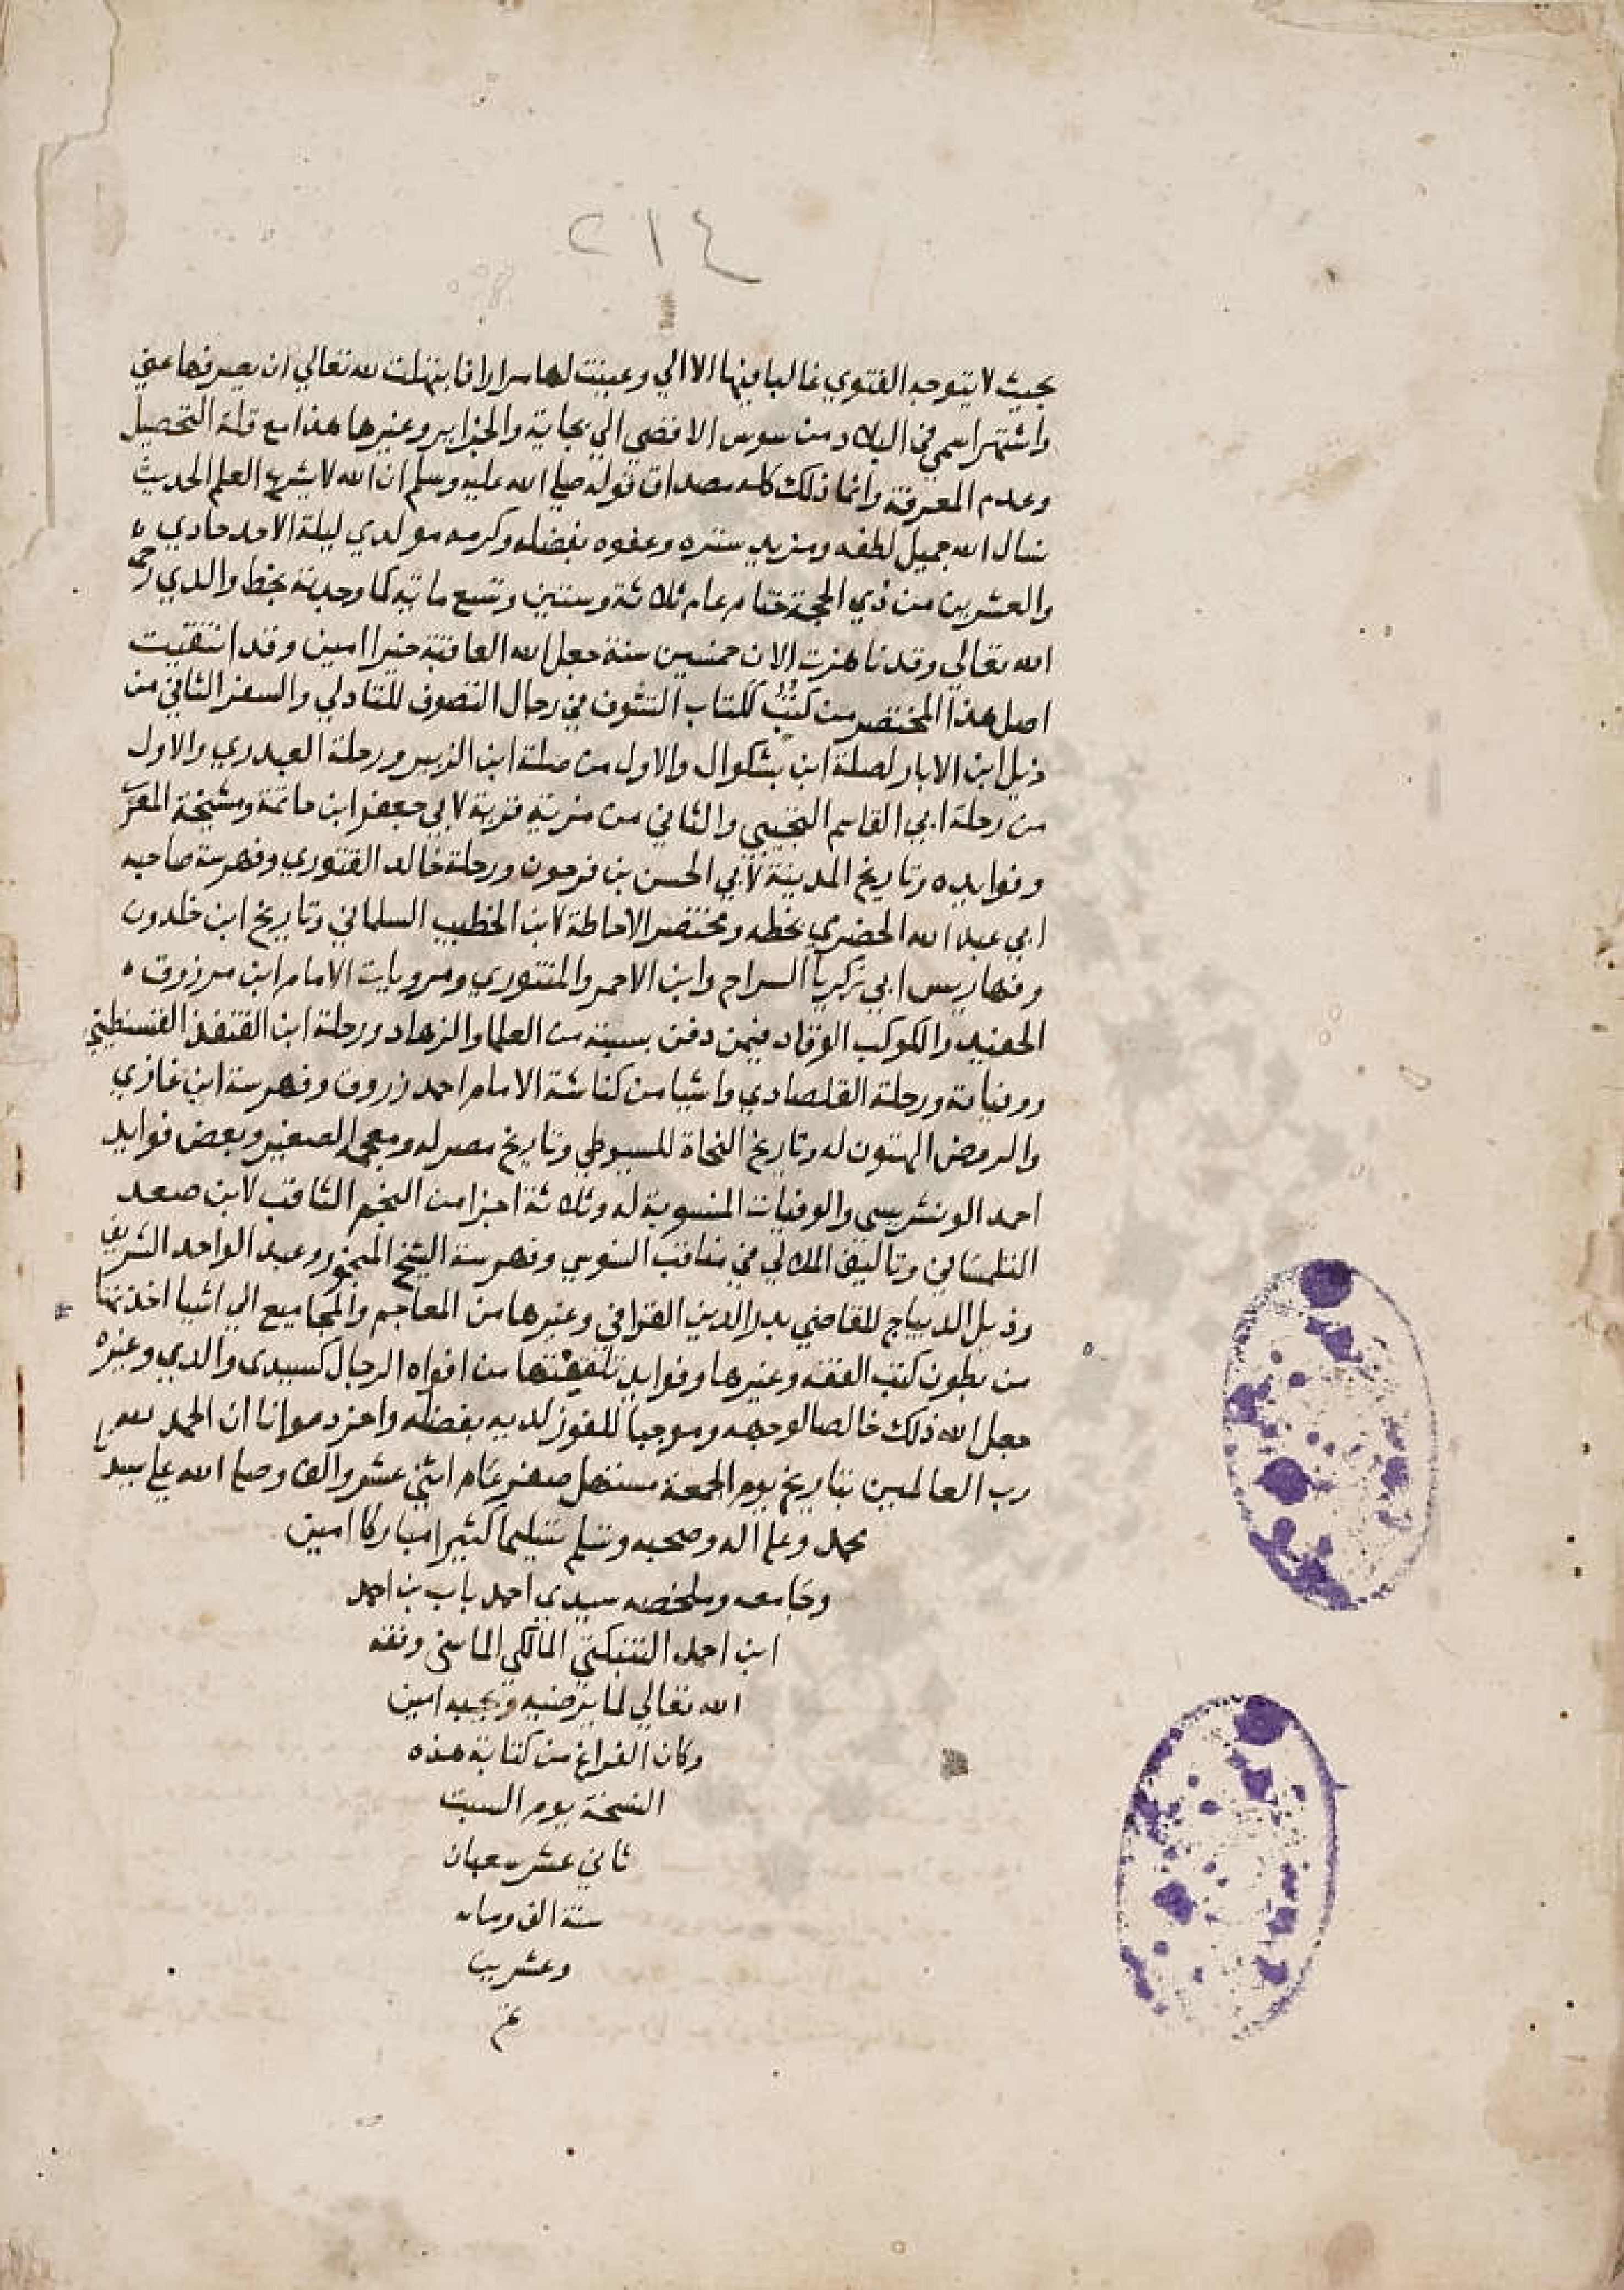 ٢١٤
بحيث لا يتوجه الفتوي غالبا فيها الا الي وعينت لها مرارا فابتهلت لله تعالي ان يصرفها عني
واشتهر اسمي في البلاد من سوس الاقصي الي بجاية والجزاير وغيرها هذا مع قلة التحصيل
وعدم المعرفة وانما ذلك كله مصداق قوله صلي الله عليه وسلم ان الله لا العلم الحديث
نسال الله جميل لطفه ومزيد ستره وعفوه بفضله وكرمه مولدي ليلة الاحد حادي
والعشرين من ذي الحجة ختام عام ثلاثة وستين وتسع ماية كما وجدته بخط والدي رحمه
الله تعالي وقد ناهزت الان خمسين سنة جعل الله العاقبة خيرا امين وقد انتقيت
اصل هذا المختصر من كتب ككتاب التشوف في رجال التصوف للتادلي والسفر الثاني من
ذيل ابن الابار لصلة ابن بشكوال والاول من صلة ابن الزبير ورحلة العبدري والاول
من رحلة ابي القاسم التجيبي والثاني من مزية لابي جعفر ابن خاتمة ومشيخة المقري
وفوايده وتاريخ المدينة لابي الحسن بن فرحون ورحلة خالد القتوري وفهرسة صاحبه
ابي عبد الله الحضري بخطه ومختصر الاحاطة لابن الخطيب السلماني وتاريخ ابن خلدون
وفهاريس ابي زكريا السراج وابن الاحمر والمنتوري ومرويات الامام ابن مرزوق
الحفيد والكوكب الوقاد فيمن دفن بسبتة من العلما والزهاد ورحلة ابن القنفذ القسنطيني
ووفياته ورحلة القلصادي واشيا من كناشة الامام احمد زروق وفهرسة ابن غازي
والروض الهتون له وتاريخ النحاة للسيوطي وتاريخ مصر له ومعجمه الصغير وبعض فوايد
احمد الونشريسي والوفيات المنسوبة له وثلاثة اجزا من النجم الثاقب لابن صعد
التلمساني وتاليف الملالي في مناقب السنوسي وفهرسة الشيخ المنجور وعبد الواحد الشريف
وذيل الديباج للقاضي بدر الدين القرافي وغيرها من المعاجم والمجاميع الي اشيا اخذتها
من بطون كتب الفقه وغيرها وفوايد تلقيتها من افواه الرجال كسيدي والدي وغيره
جعل الله ذلك خالصا لوجهه وموجبا للفوز لديه بفضله واخر دعوانا ان الحمد لله
رب العالمين بتاريخ يوم الجمعة مستهل صفر عام اثني عشر والف وصلي الله علي سيد
محمد وعلي اله وصحبه وسلم تسليما كثيرا مباركا امين
وجامعه وملخصه سيدي احمد باب بن احمد
ابن احمد التنبكتي المالكي الماسني وفقه
الله تعالي لما يرضيه ويجيه امين
وكان الفراغ من كتابة هذه
النسخة يوم السبت
ثاني عشر شعبان
سنة الف ومايه
وعشرين